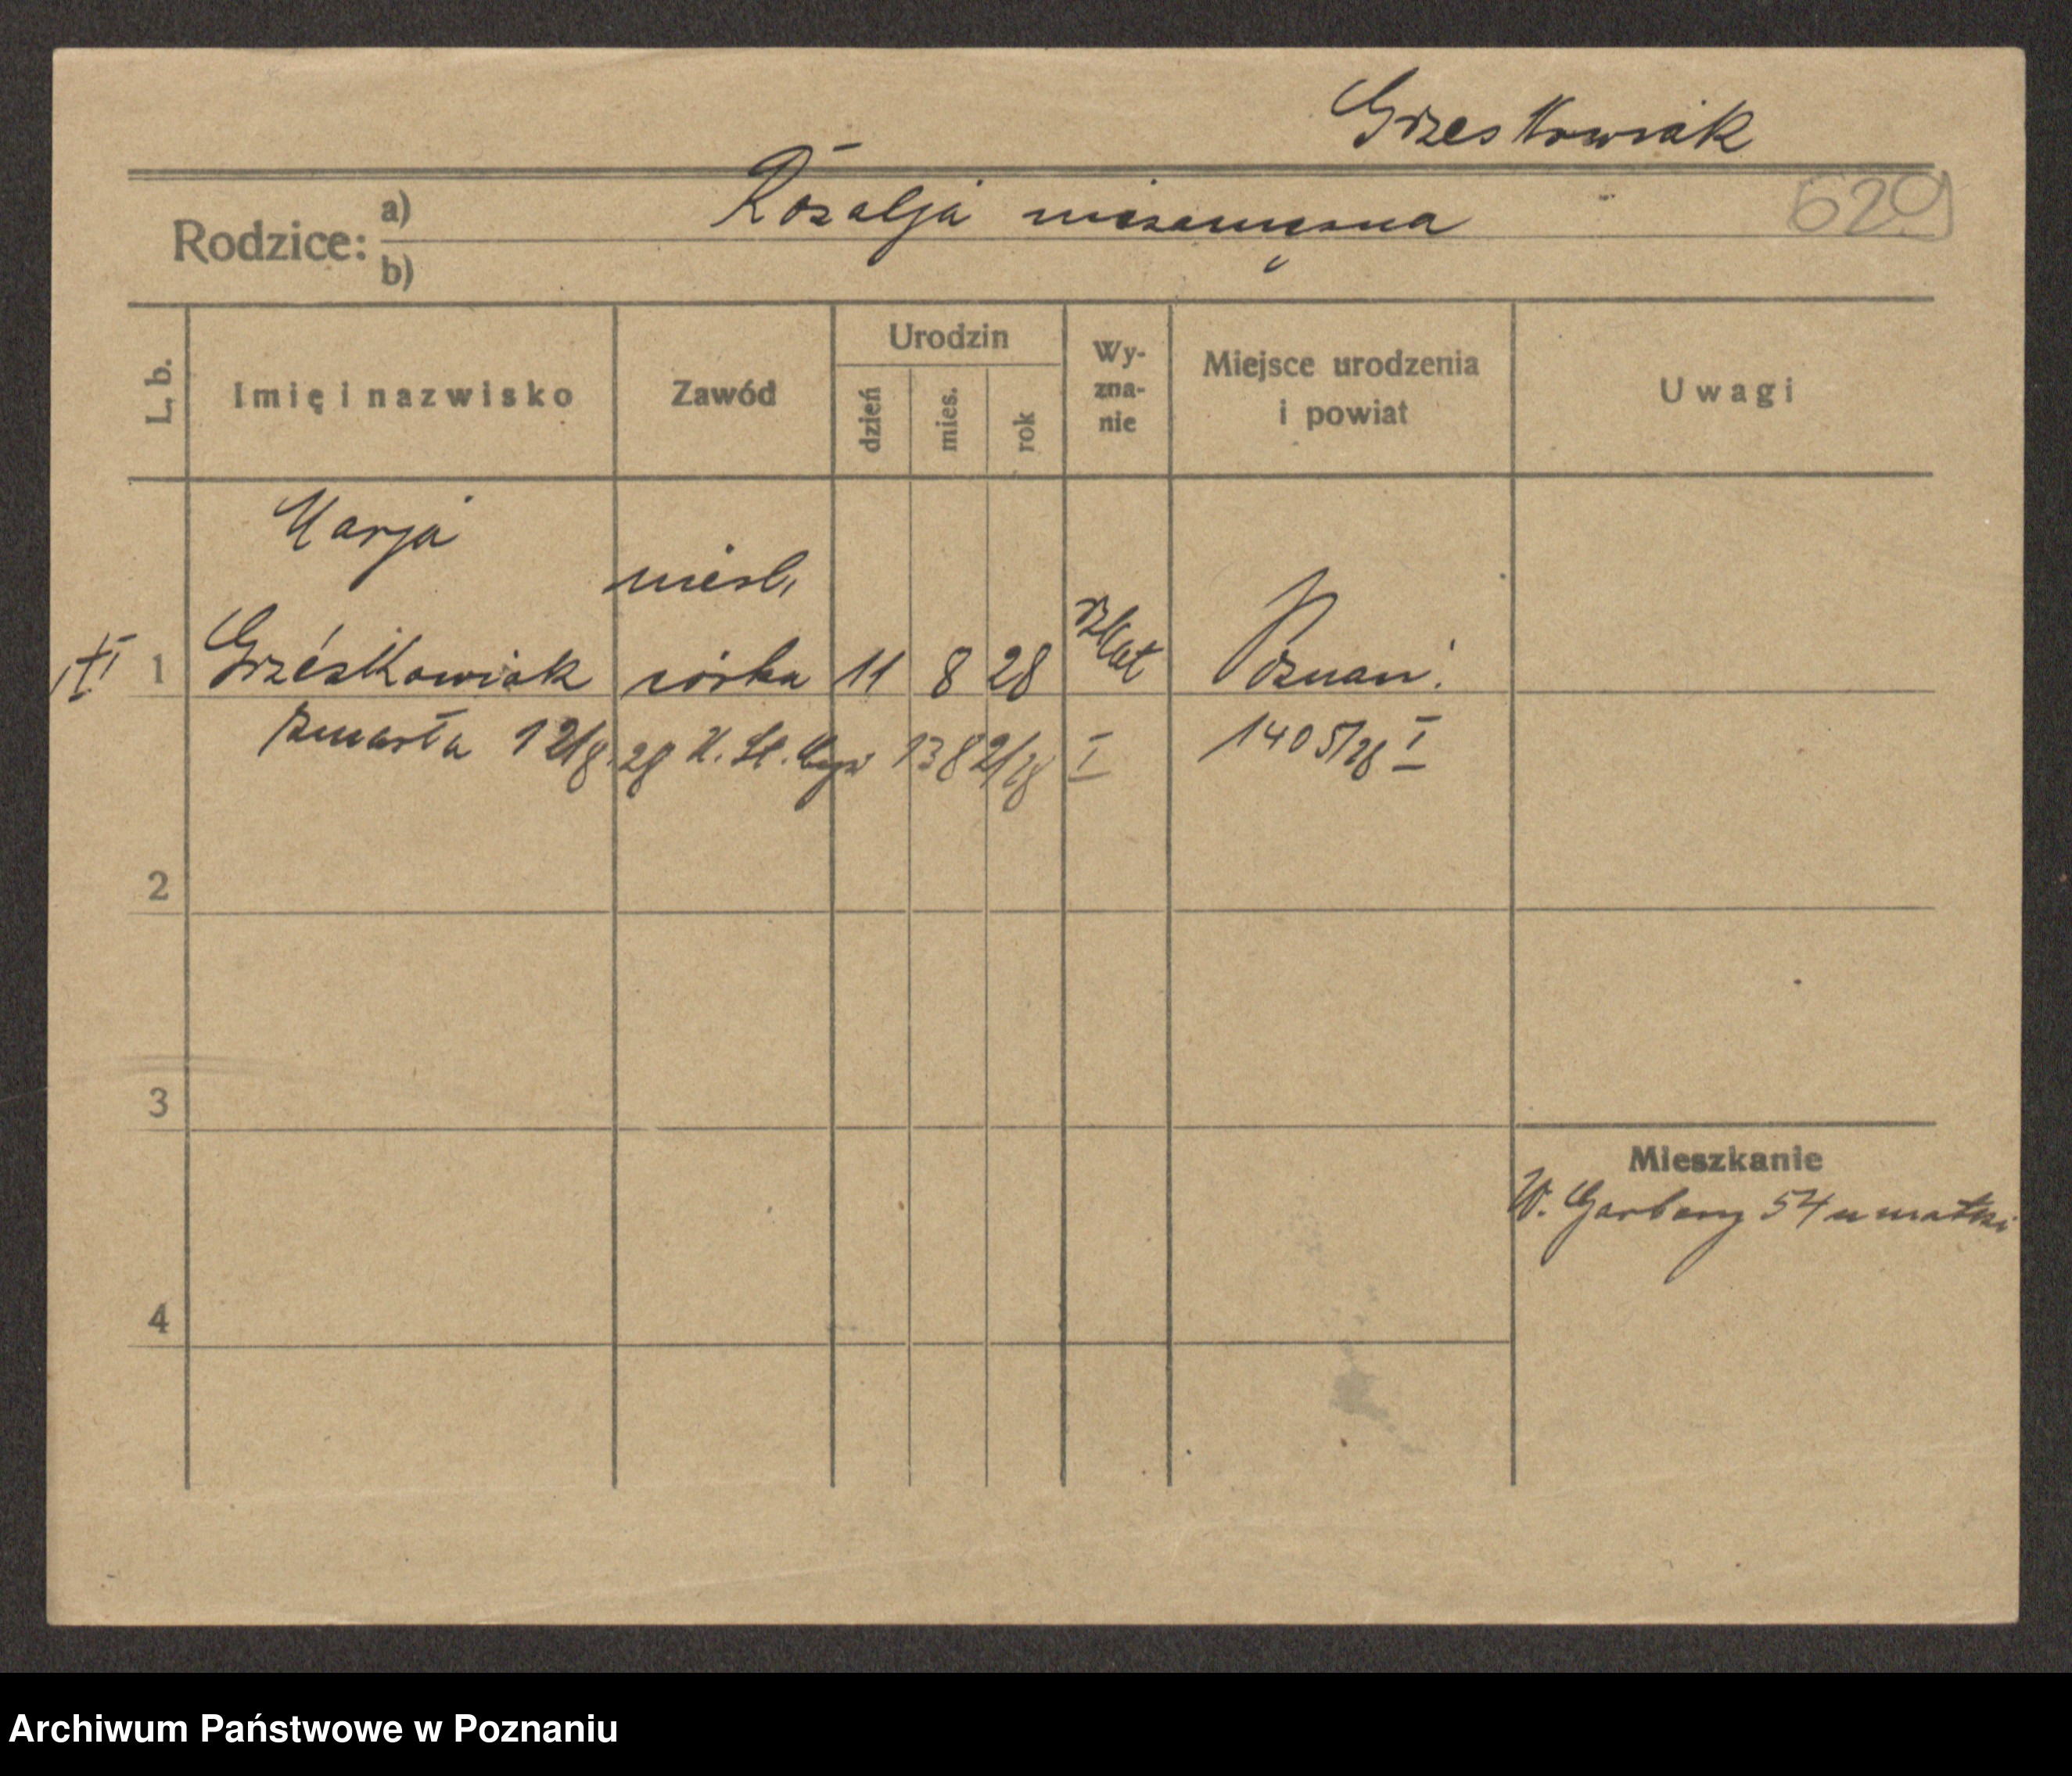 Grzeskowiak
Rodzice: a) Rozalja niezamężna
629
b)
L. b.
Imię i nazwisko
Zawód
Urodzin
dzień
mies.
rok
Wy-
zna-
nie
Miejsce urodzenia
i powiat
Uwagi
Marja
nieśl.
1 Grześkowiak córka 11 8 28 rzkat Poznań.
zmarła 12/8.28 U. St. 1382/28 I 1405/28 I
2
3
Mieszkanie
W. Garbary 54 u matki
4
Archiwum Państwowe w Poznaniu